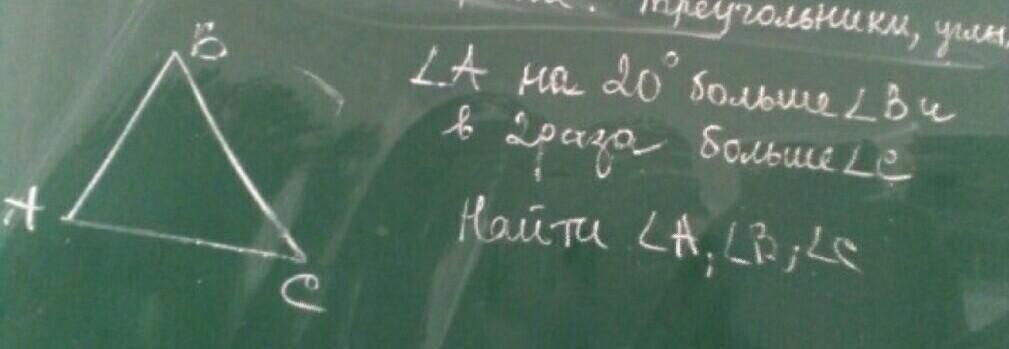 Треугольники, углы,
B
∠A на 20° больше ∠B и
в 2 раза больше ∠C
A
Найти ∠A, ∠B, ∠C
C